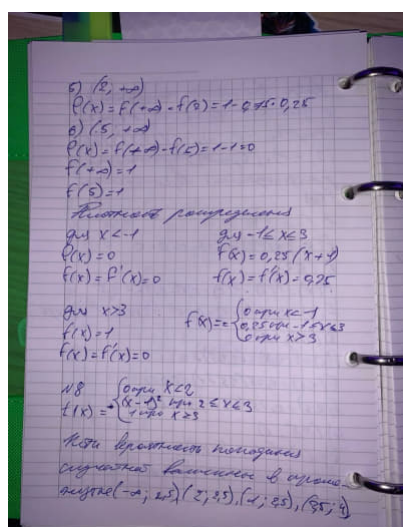 б) (2, +∞)
P(x) = F(+∞) - F(2) = 1 - 0,75 = 0,25
в) (5, +∞)
P(x) = F(+∞) - F(5) = 1 - 1 = 0
F(+∞) = 1
F(5) = 1
Плотность распределения
для x < -1 для -1 ≤ x ≤ 3
F(x) = 0 F(x) = 0,25 (x + 1)
f(x) = F'(x) = 0 f(x) = F'(x) = 0,25
для x > 3
F(x) = 1
f(x) = F'(x) = 0
f(x) = { 0 при x < -1
0,25 при -1 ≤ x ≤ 3
0 при x > 3
№8 { 0 при x < 2
F(x) = (x - 1)² при 2 ≤ x ≤ 3
1 при x > 3
Найти вероятность попадания
случайной величины в проме-
жутке (-∞; 2,5), (2; 2,5), (1; 2,5), (2,5; 4)